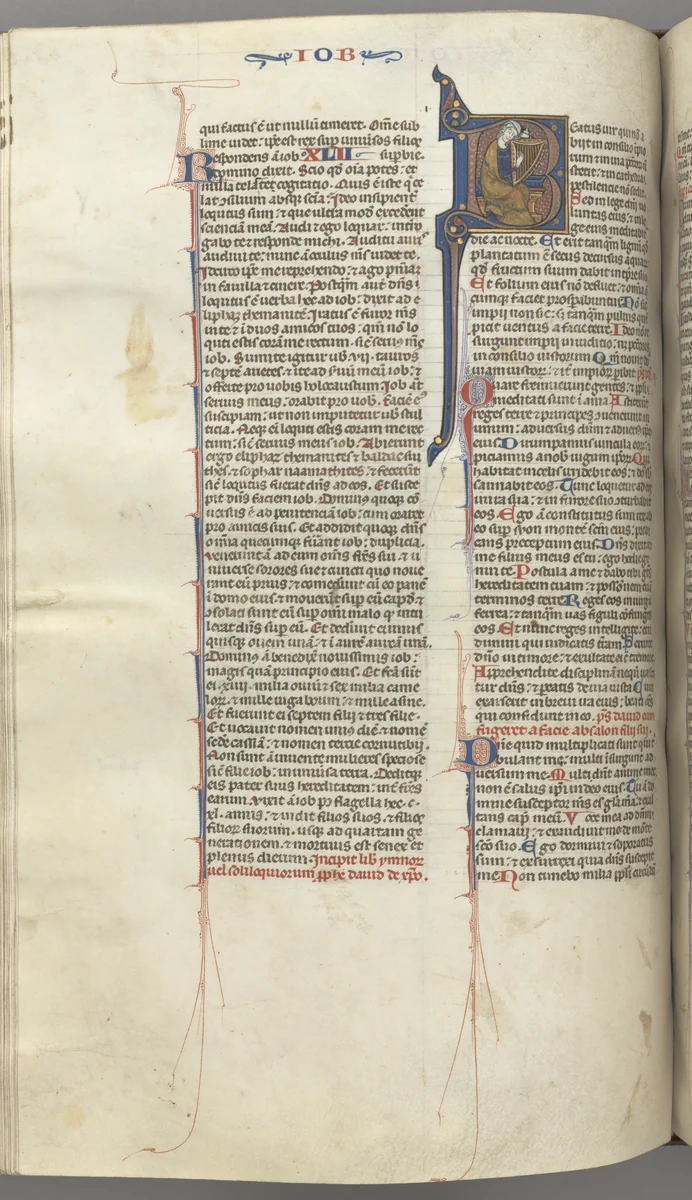 IOB
qui factus ē ut nullū timeret. Om̄e sub
lime uidet: ip̄e est rex sup uniūsos filios
Respondens āt iob. XLII supbie.
domino dixit. Scio qd̄ oīa potes: et
nulla te latet cogitatio. Quis ē iste q̄ ce
lat ɔsilium absq; scīa: Ideo insipient
loqutus sum: ⁊ que ultra modū excederēt
sciencia meā. Audi ⁊ ego loquar: intro
gabo te ⁊ responde michi. Auditu auris
audiui te: nunc āt oculus m̄s uidet te.
Idcirco ip̄e me reprehendo: ⁊ ago pn̄iaz
in fauilla ⁊ cinere. Postq̄m aut̄ dn̄s
loqutus ē uerba hec ad iob: dixit ad e
liphaz themanitē. Iratus ē furor m̄s
in te ⁊ ī duos amicos tuos: qm̄ nō lo
quti estis corā me rectum: sic seruus m̄s
iob. Sumite igitur ub̄ .vii. tauros
⁊ septē arietes: ⁊ ite ad suū meū iob: ⁊
offerte pro uobis holocaustum. Iob āt
seruus meus: orabit pro uob. Faciē eius
suscipiam: ut non imputetur ub̄ stul
ticia. Neq; eī loquti estis coram me rec
tum: sic seruus meus iob. Abierunt
ergo eliphaz themanites ⁊ baldac sui
thes: ⁊ sophar naamathites: ⁊ fecerūt
sic loqutus fuerat dn̄s ad eos. Et susce
pit dn̄s faciem iob. Dominus quoq; cō
uersus ē ad penitenciā iob: cum oraret
pro amicis suis. Et addidit quoq; dn̄s
om̄ia quecumq; fuerant iob: duplicia.
Venerunt āt ad eum om̄s frēs sui: ⁊ u
niuerse sorores sue ⁊ cuncti quo noue
rant eū prius: ⁊ comederunt cū eo panē
ī domo eius ⁊ mouerunt sup eū capud: ⁊
ɔsolati sunt eū sup om̄i malo q̄ intu
lerat dn̄s sup eū. Et dederunt ei unus
quisq; ouem unā: ⁊ ī aurē aurea unā.
Dominus āt benedixit nouissimis iob:
magis quā principio eius. Et facta sūt
ei .xiiii. milia ouiū ⁊ sex milia came
lorz: ⁊ mille iuga boum: ⁊ mille asine.
Et fuerunt ei septem filii ⁊ tres filie.
Et uocauit nomen unius diē ⁊ nomē
sede cassiā: ⁊ nomen tercie cornu tibii.
Non sunt āt inuente mulieres speciose
sic filie iob: in uniūsa terra. Deditq;
eis pater suus hereditatem: int̄ frēs
earum. Vixit āt iob p̄ flagella hec .c.
xl. annis: ⁊ uidit filios suos: ⁊ filios
filiorz suorum. usq; ad quartam ge
nerationem. ⁊ mortuus est senex et
plenus dierum. Incipit lib̄ ymnorz
uel soliloquiorum pp̄he dauid de xp̄o.
Beatus uir qui nō a
biit in consilio īpio
rum: ⁊ in uia peccatorz
stetit: ⁊ in cathedra
pestilencie nō sedit.
Sed in lege dn̄i uo
luntas eius: ⁊ in le
ge eius meditabit̄
die ac nocte. Et erit tanq̄m lignū qd̄
plantatum ē secus decursus aquarz
qd̄ fructum suum dabit in tp̄re suo
Et folium eius nō defluet: ⁊ om̄ia q̄
cumq; faciet prospabuntur. Nō sic
impii non sic: sꝫ tanq̄m puluis que
picit uentus a facie terre. Ideo nō re
surgunt impii in iudicio: nꝫ peccores
in consilio iustorum. Qm̄ nouit dn̄s
uiam iustorz: ⁊ it̄ impiorz pibit
Quare fremuerunt gentes: ⁊ ipl̄i
meditati sunt inania. Astiterūt
reges terre ⁊ principes ɔuenerunt in
unum: aduersus dn̄m ⁊ aduersus xp̄m
eius. Dirumpamus uincula eorz: ⁊
piciamus a nob̄ iugum ip̄orz. Qui
habitat in celis irridebit eos: ⁊ dn̄s sub
sannabit eos. Tunc loquetur ad eos
in ira sua: ⁊ in furore suo ɔturbabit
eos. Ego āt constitutus sum rex ab
eo sup syon montē scm̄ eius: predi
cans preceptum eius. Dn̄s dixit ad
me filius meus es tu: ego hodie ge
nui te. Postula a me ⁊ dabo tibi gentes
hereditatem tuam: ⁊ possessionem tuā
terminos terre. Reges eos in uirga
ferrea: ⁊ tanq̄m uas figuli ɔfringes
eos. Et nunc reges intelligite: eru
dimini qui iudicatis terram. Seruite
dn̄o in timore: ⁊ exultate ei cū tremore.
Apprehendite disciplinā neq̄n iras
catur dn̄s: ⁊ peatis de uia iusta. Cum
exarserit in breui ira eius: beati om̄s
qui confidunt in eo. p̄s dauid cum
fugeret a facie absalon filii sui.
Domine quid multiplicati sunt qui t̄
bulant me: multi insurgunt ad
uersum me. Multi dicunt anime mee:
non ē salus ip̄i in deo eius. Tu āt do
mine susceptor m̄s es gl̄a m̄a: ⁊ exal
tans capud meū. Voce mea ad dn̄m
clamaui: ⁊ exaudiuit me de mōte
scō suo. Ego dormiui ⁊ soporatus
sum: ⁊ exsurrexi quia dn̄s suscepit
me. Non timebo milia ppl̄i circūdā